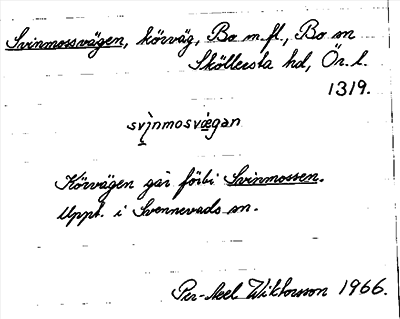 Svinmossvägen, körväg, Bo m.fl., Bo sn
Sköllersta hd, Ör. l.
1319.
svi̬nmosvægan
Körvägen går förbi Svinmossen.
Uppt. i Svennevads sn.
Per-Axel Wiktorsson 1966.